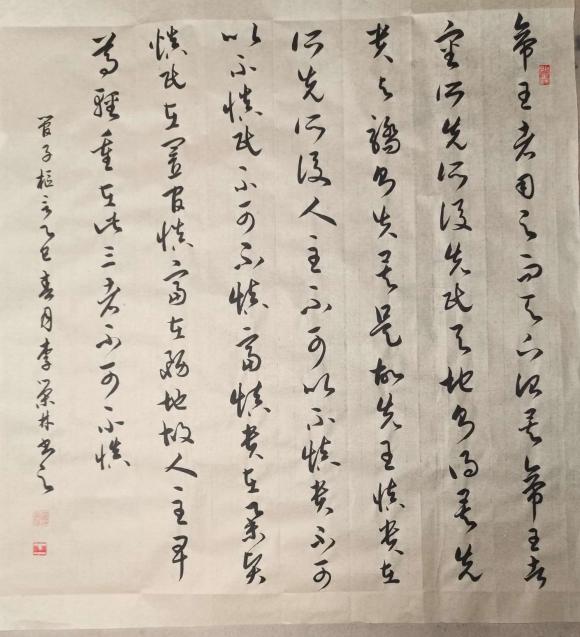 帝王者用之而天下治矣帝王者
審所先所後先民與地則得矣先
貴與驕則失矣是故先王慎貴在
所先所後人主不可以不慎貴不可
以不慎民不可不慎富慎貴在舉賢
慎民在置官慎富在務地故人主卑
尊輕重在此三者不可不慎
管子樞言乙巳春月李榮林書之